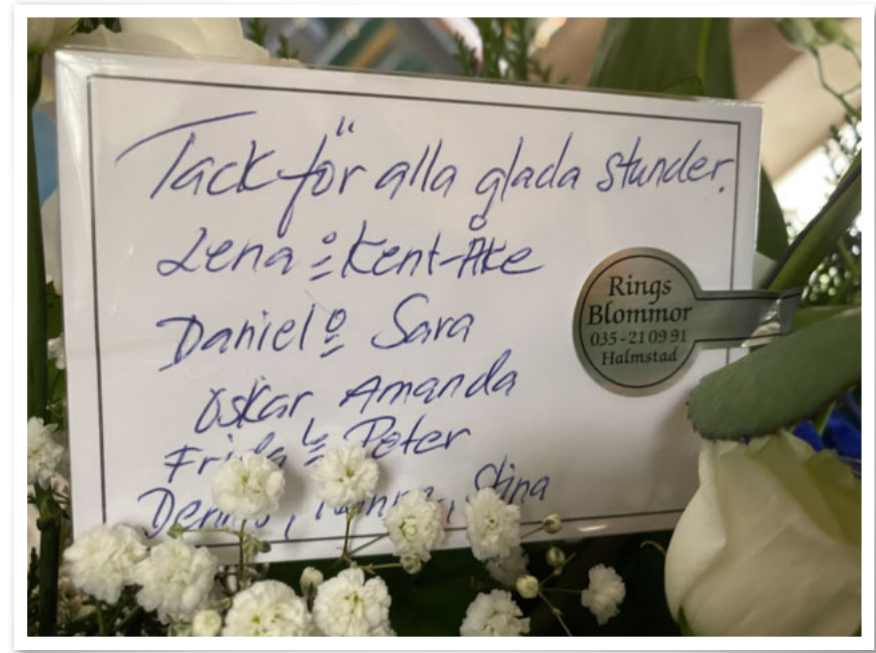 Tack för alla glada stunder.
Lena o Kent-Åke
Daniel o Sara
Oskar, Amanda
Frida o Peter
Stina
Rings
Blommor
035-21 09 91
Halmstad